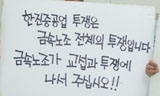 한진중공업 투쟁은
금속노조 전체의 투쟁입니다
금속노조가 교섭과 투쟁에
나서 주십시오!!